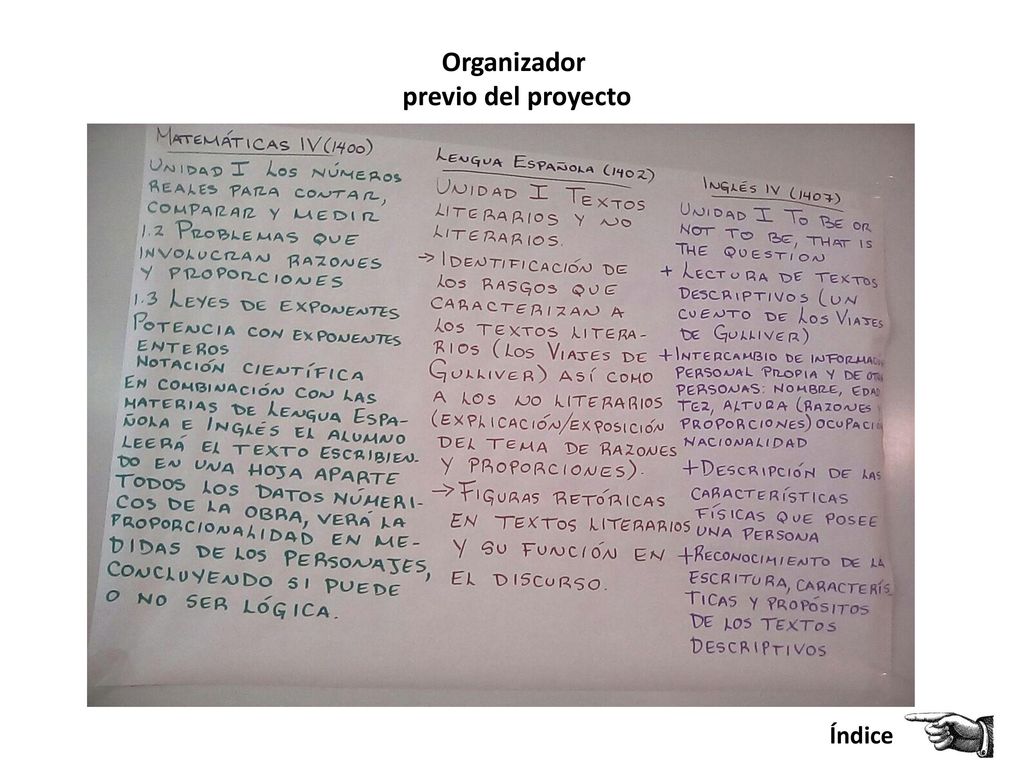 Organizador
previo del proyecto
MATEMÁTICAS IV (1400)
UNIDAD I LOS NÚMEROS
REALES PARA CONTAR,
COMPARAR Y MEDIR
1.2 PROBLEMAS QUE
INVOLUCRAN RAZONES
Y PROPORCIONES
1.3 LEYES DE EXPONENTES
POTENCIA CON EXPONENTES
ENTEROS
NOTACIÓN CIENTÍFICA
EN COMBINACIÓN CON LAS
MATERIAS DE LENGUA ESPA-
ÑOLA E INGLÉS EL ALUMNO
LEERÁ EL TEXTO ESCRIBIEN-
DO EN UNA HOJA APARTE
TODOS LOS DATOS NÚMERI-
COS DE LA OBRA, VERÁ LA
PROPORCIONALIDAD EN ME-
DIDAS DE LOS PERSONAJES,
CONCLUYENDO SI PUEDE
O NO SER LÓGICA.
LENGUA ESPAÑOLA (1402)
UNIDAD I TEXTOS
LITERARIOS Y NO
LITERARIOS.
→ IDENTIFICACIÓN DE
LOS RASGOS QUE
CARACTERIZAN A
LOS TEXTOS LITERA-
RIOS (LOS VIAJES DE
GULLIVER) ASÍ COMO
A LOS NO LITERARIOS
(EXPLICACIÓN/EXPOSICIÓN
DEL TEMA DE RAZONES
Y PROPORCIONES).
→ FIGURAS RETÓRICAS
EN TEXTOS LITERARIOS
Y SU FUNCIÓN EN
EL DISCURSO.
INGLÉS IV (1407)
UNIDAD I TO BE OR
NOT TO BE, THAT IS
THE QUESTION
+ LECTURA DE TEXTOS
DESCRIPTIVOS (UN
CUENTO DE LOS VIAJES
DE GULLIVER)
+ INTERCAMBIO DE INFORMACIÓN
PERSONAL PROPIA Y DE OTRAS
PERSONAS: NOMBRE, EDAD
TEZ, ALTURA (RAZONES
PROPORCIONES) OCUPACIÓN
NACIONALIDAD
+ DESCRIPCIÓN DE LAS
CARACTERÍSTICAS
FÍSICAS QUE POSEE
UNA PERSONA
+ RECONOCIMIENTO DE LA
ESCRITURA, CARACTERÍS
TICAS Y PROPÓSITOS
DE LOS TEXTOS
DESCRIPTIVOS
Índice